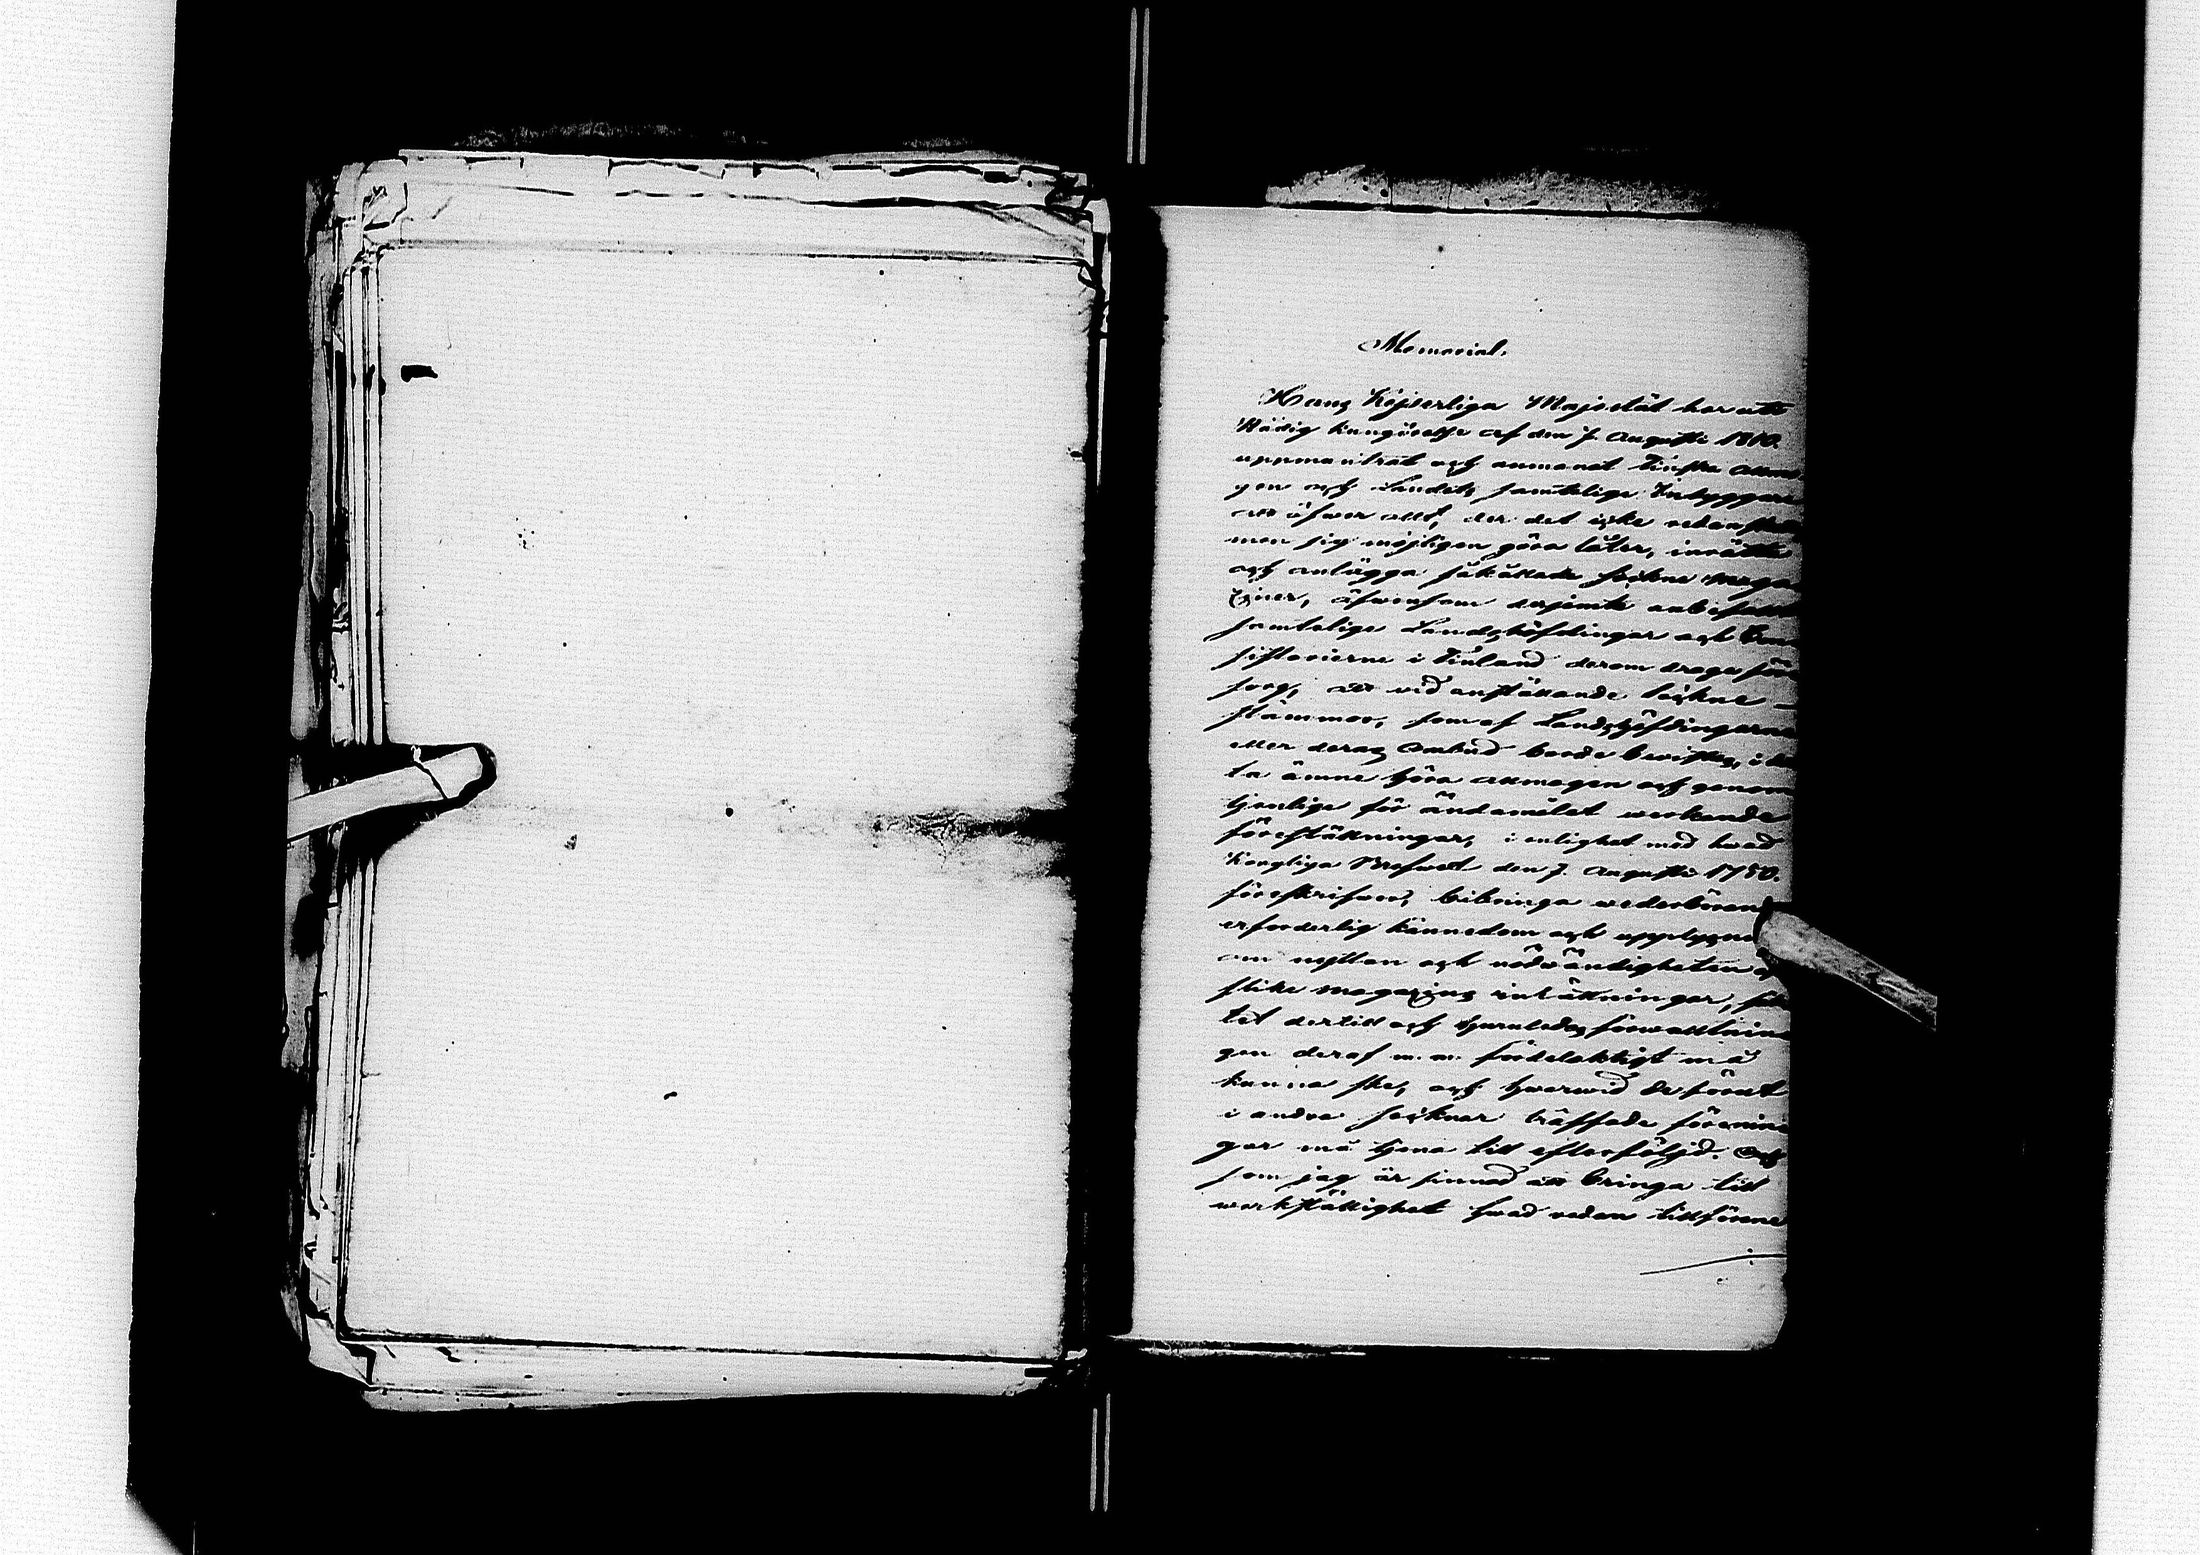 Memorial.
Hans Kejserliga Majestät har uti
Nådig kungörelse af den 7 Augusti 1810.
uppmuntrat och anmanat Finska allmo
gen och Landets samtelige Inbyggare
att öfwer allt, der det icke redan skett
men sig möjligen göra låter, inrätta
och anlägga så kallade sockne maga
ziner, äfwensom derjemte anbefallt
samtelige Landshöfdingar och Con
sistorierne i Finland derom draga för
sorg, att wid anställande sockne-
stämmor, som af Landshöfdingarne
eller deras Ombud borde bewistas, i det
ta ämne höra allmogen och genom
tjenlige för ändamålet werkande
föreställningar, i enlighet med hwad
Kongliga Brefwet den 7 Augusti 1750.
föreskrifwer, bibringa wederböran
erforderlig kännedom och upplysning
om nyttan och nödwändigheten af
slike magazins inrättningar, sät
tet dertill och huruledes förwaltnin
gen deraf m.m. fördelaktigt må
kunna ske, och hwarwid de förut
i andra socknar träffade förenin
gar må tjena till efterföljd. Och
som jag är sinnad att bringa till
werkställighet hwad redan tillförene